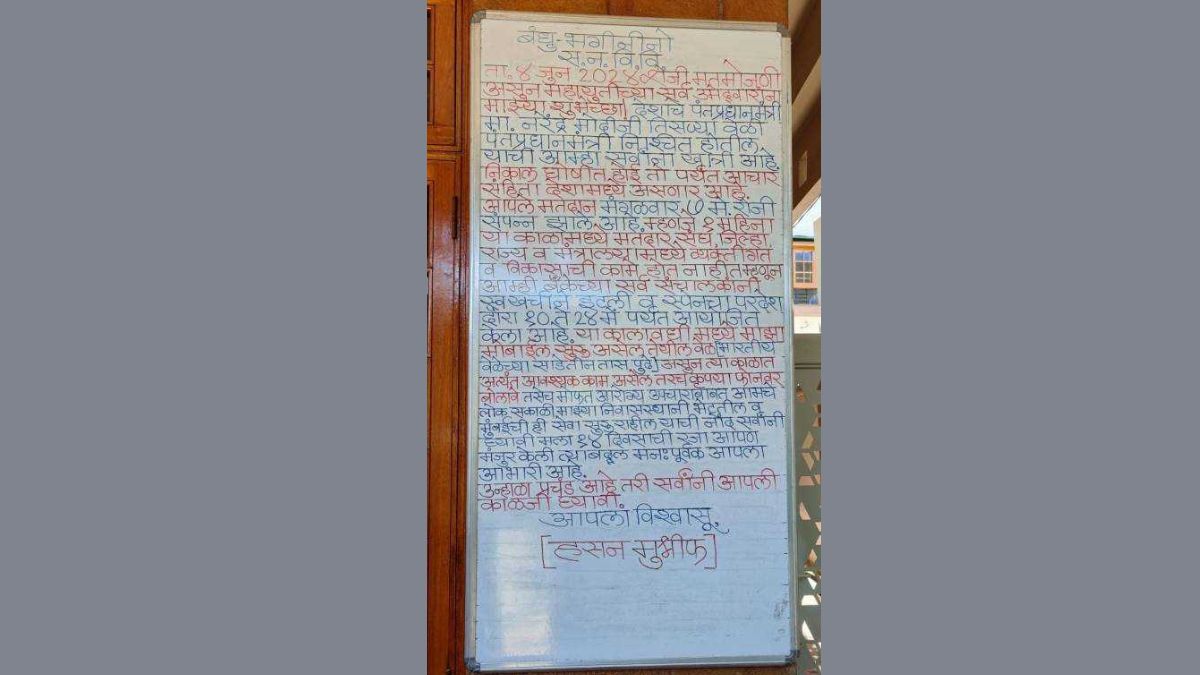 बंधु-भगीनीनो
स.न.वि.वि.
ता. ४ जुन 2024 रोजी मतमोजणी
असुन महायुतीच्या सर्व उमेदवारांना
माझ्या शुभेच्छा. देशाचे पंतप्रधानमंत्री
मा. नरेंद्र मोदीजी तिसऱ्या वेळी
पंतप्रधानमंत्री निश्चित होतील
याची आम्हा सर्वांना खात्री आहे.
निकाल घोषीत होई तो पर्यंत आचार
संहिता देशामध्ये असणार आहे.
आपले मतदान मंगळवार ७ मे. रोजी
संपन्न झाले आहे. म्हणजे १ महिना
या काळामध्ये मतदार संघ, जिल्हा
राज्य व मंत्रालयामध्ये व्यक्तीगत
व विकासाची कामे होत नाहीत म्हणून
आम्ही बँकेच्या सर्व संचालकांनी
स्वखर्चाने इटली व स्पेनचा परदेश
दौरा १० ते 28 मे पर्यंत आयोजित
केला आहे. या कालावधी मध्ये माझा
मोबाईल सुरु असेल तेथील वेळ भारतीय
वेळेच्या साडेतीन तास पुढे असुन त्या काळात
अत्यंत आवश्यक काम असेल तरच कृपया फोनवर
बोलावे तसेच मोफत आरोग्य उपचाराबाबत आमचे
लोक सकाळी माझ्या निवासस्थानी भेटतील व
मुंबईची ही सेवा सुरु राहील याची नोंद सर्वांनी
घ्यावी मला १४ दिवसाची रजा आपण
मंजुर केली त्याबद्दल मनःपूर्वक आपला
आभारी आहे.
उन्हाळा प्रचंड आहे तरी सर्वांनी आपली
काळजी घ्यावी.
आपला विश्वासू.
[हसन मुश्रीफ]